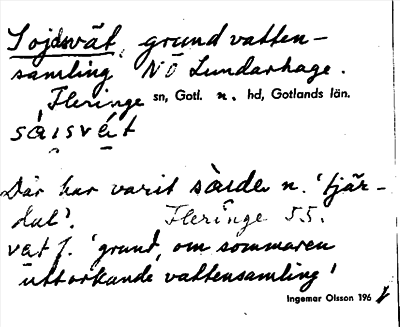 Sojdsvät, grund vatten-
samling NÖ Lundarhage.
Fleringe sn, Gotl. n. hd, Gotlands län.
Där har varit n. 'tjär-
dal'. Fleringe 55.
vät f. 'grund, om sommaren
uttorkande vattensamling'
Ingemar Olsson 196